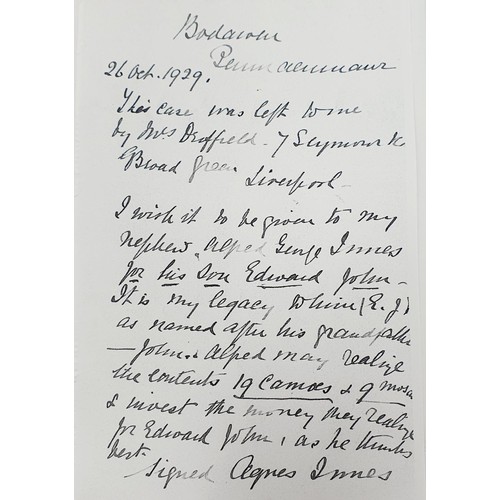 Bodawen
Penmaenmawr
26 Oct. 1929.
This case was left to me
by Mrs Driffield. 7 Seymour
Broad Green
Liverpool -
I wish it to be given to my
nephew, Alfred George Innes
for his Son Edward John -
It is my legacy to him (E. J)
as named after his grandfather
- John. Alfred may realize
the contents 19 Cameos & 9 mosaic
& invest the money they realize
for Edward John, as he thinks
best -
Signed Agnes Innes